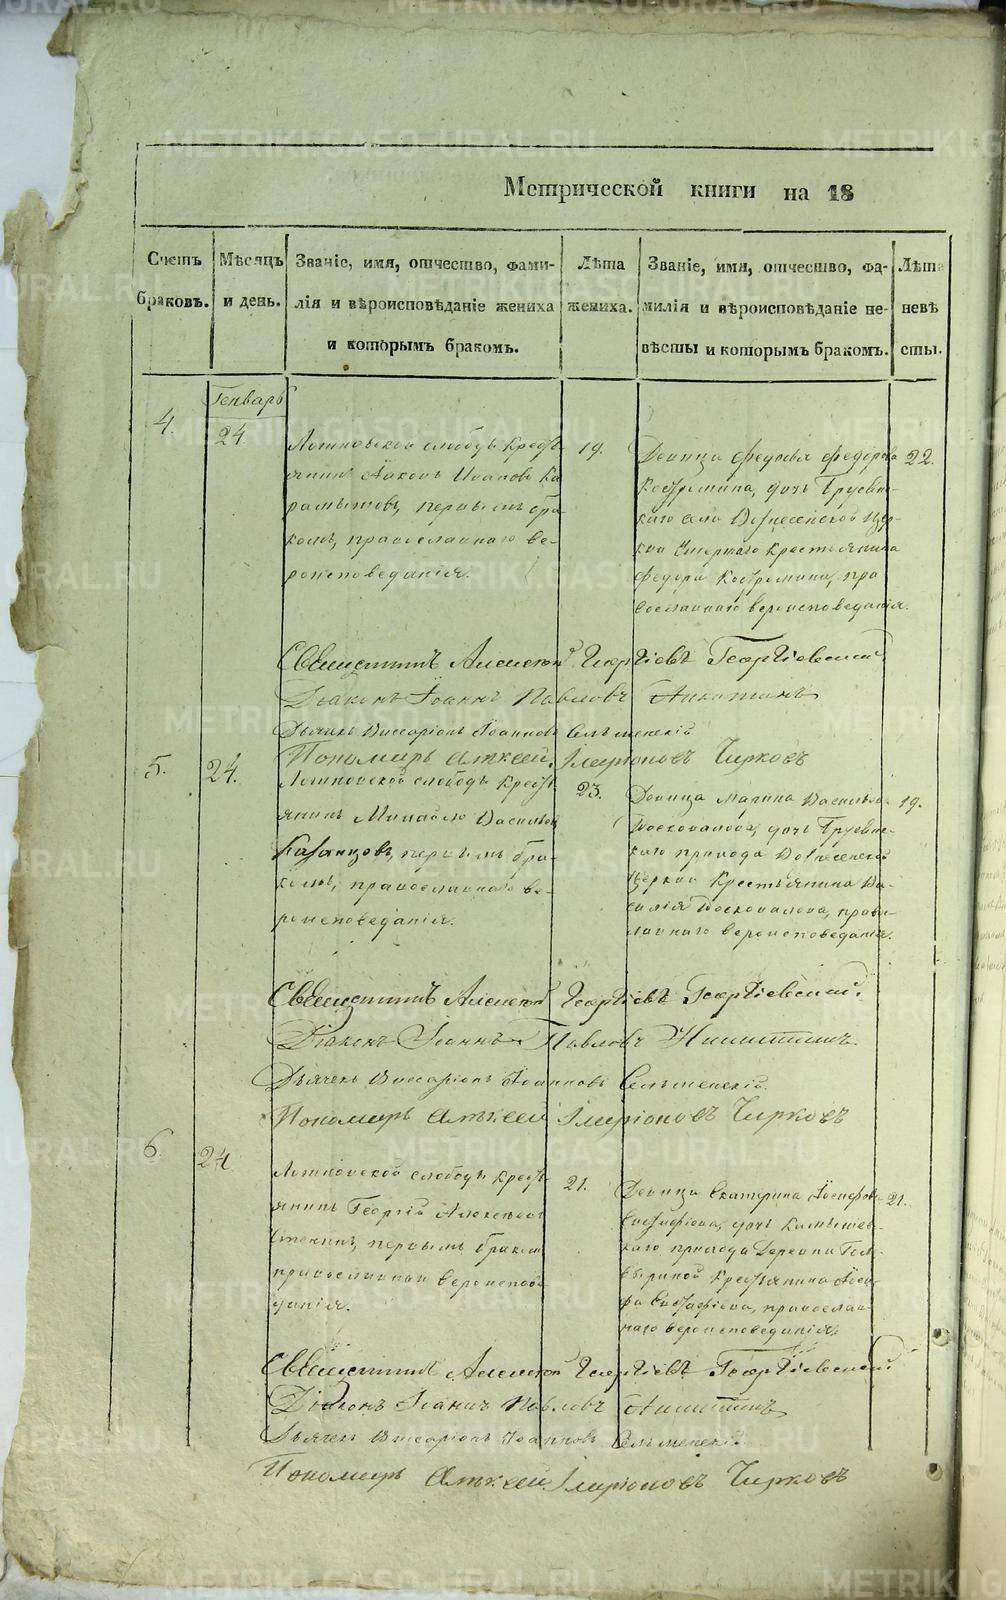 METRIKI.GASO-URAL.RU
Метрической книги на 18
Счетъ браковъ.
Мѣсяцъ и день.
Званіе, имя, отчество, фами-
лія и вѣроисповѣданіе жениха
и которымъ бракомъ.
Лѣта жениха.
Званіе, имя, отчество, фа-
милія и вѣроисповѣданіе не-
вѣсты и которымъ бракомъ.
Лѣта невѣ
сты.
Генварь
4.
24
слободы кресть-
янинъ Иванов
первымъ бра
комъ, православнаго ве-
роисповеданія.
19.
Девица Федорова
Костромина, дочь
каго села Вознесенской цер-
кви крестьянина
Федора Костромина, пра
вославнаго вероисповеданія.
22.
Священникъ Алексей Георгіевъ Георгіевскій.
Діаконъ Іоаннъ Павловъ Никитинъ
Дьячекъ Виссаріонъ Іоанновъ Сельменскій
Пономарь Алексей Иларіоновъ Чирковъ
5.
24.
слободы кресть-
янинъ Михайло Васильевъ
Казанцовъ, первымъ бра-
комъ, православнаго ве-
роисповеданія.
23.
Девица Марина Васильева
дочь
каго прихода Вознесенской
церкви крестьянина Ва-
силія право-
славнаго вероисповеданія.
19.
Священникъ Алексей Георгіевъ Георгіевскій.
Діаконъ Іоаннъ Павловъ Никитинъ
Дьячекъ Виссаріонъ Іоанновъ Сельменскій.
Пономарь Алексей Иларіоновъ Чирковъ
6.
24
слободы кресть-
янинъ Георгій Алексеевъ
первымъ бракомъ
православнаго вероиспове
данія.
21.
Девица Екатерина Іосифова
Евстафіева, дочь Камышев-
каго прихода деревни
крестьянина Іоси-
фа Евстафіева, православ-
наго вероисповеданія.
21.
Священникъ Алексей Георгіевъ Георгіевскій.
Діаконъ Іоаннъ Павловъ Никитинъ
Дьячекъ Виссаріонъ Іоанновъ Сельменскій.
Пономарь Алексей Иларіоновъ Чирковъ